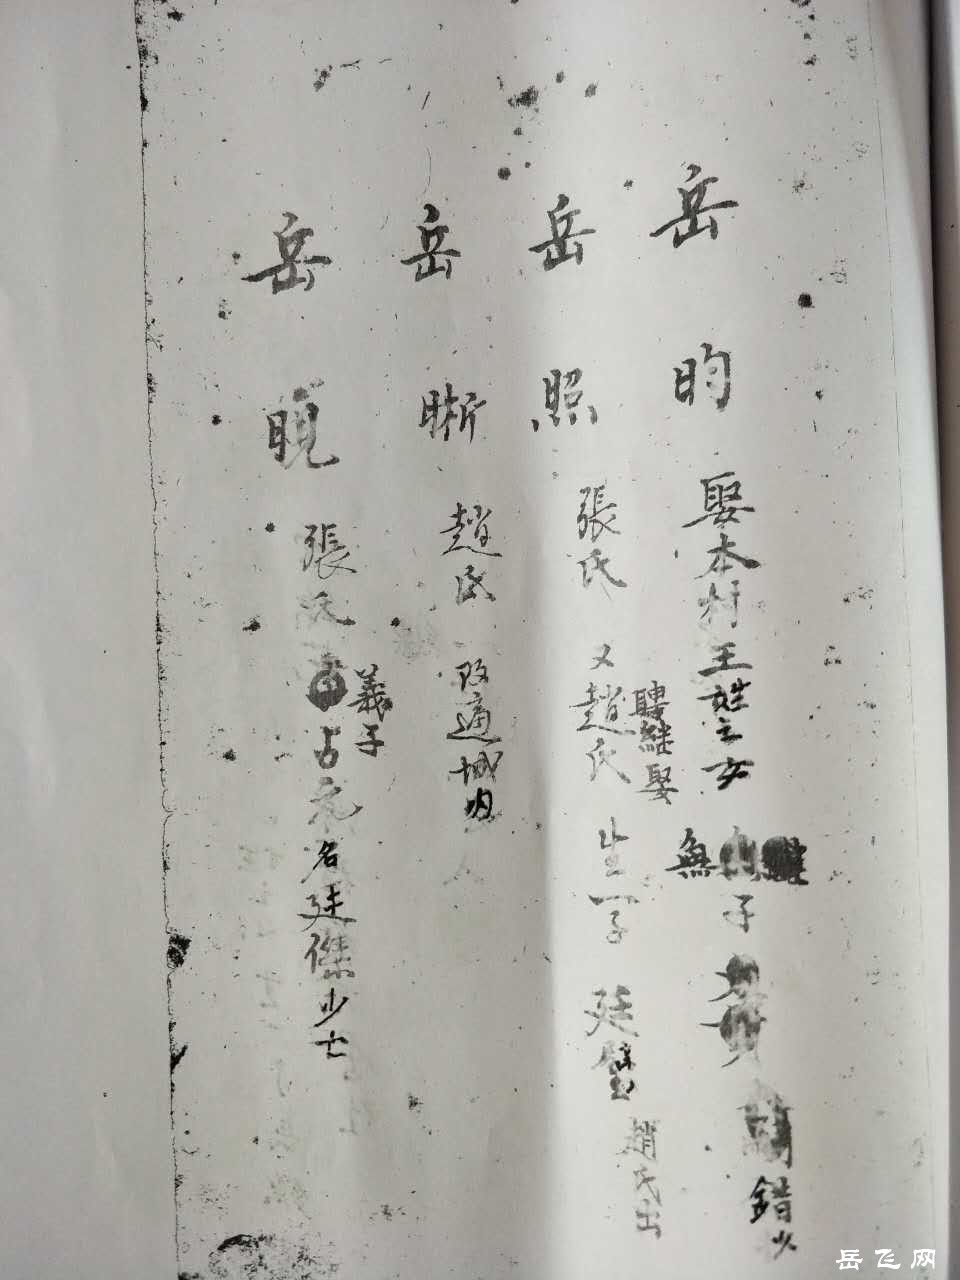 岳昀娶本村王姓之女
無子
錯少
岳照張氏又趙氏生一子廷璧趙氏出
聘繼娶
岳晣趙氏改適城内
岳晛張氏占元名廷傑少亡
義子
岳飞网